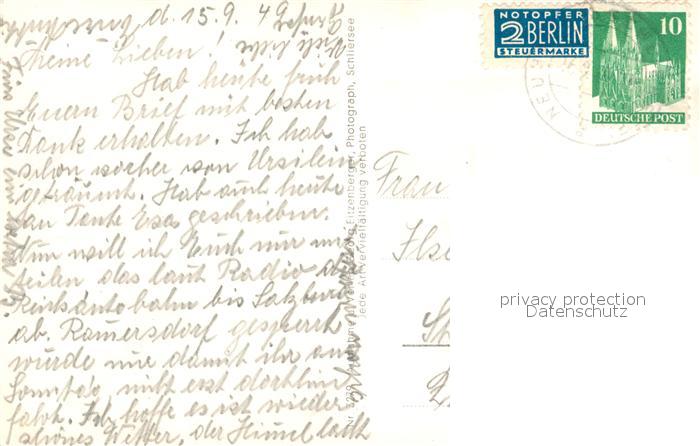 d. 15.9.49
Meine Lieben!
Hab heute früh
Euern Brief mit besten
Dank erhalten. Ich hab
schon vorher von Ursilein
geträumt. Hab auch heute
an Tante Esa geschrieben.
Nun will ich Euch nur mit-
teilen das laut Radio die
Reichsautobahn bis Salzburg
ab. Ramersdorf gesperrt
würde nur damit ihr am
Sonntag nicht erst dorthin
fahrt. Ich hoffe es ist wieder
schönes Wetter, der Himmel lacht
Photograph, Schliersee
Jede Art Vervielfältigung verboten
NOTOPFER
2 BERLIN
STEUERMARKE
10
DEUTSCHE POST
Frau
Ilse
privacy protection
Datenschutz